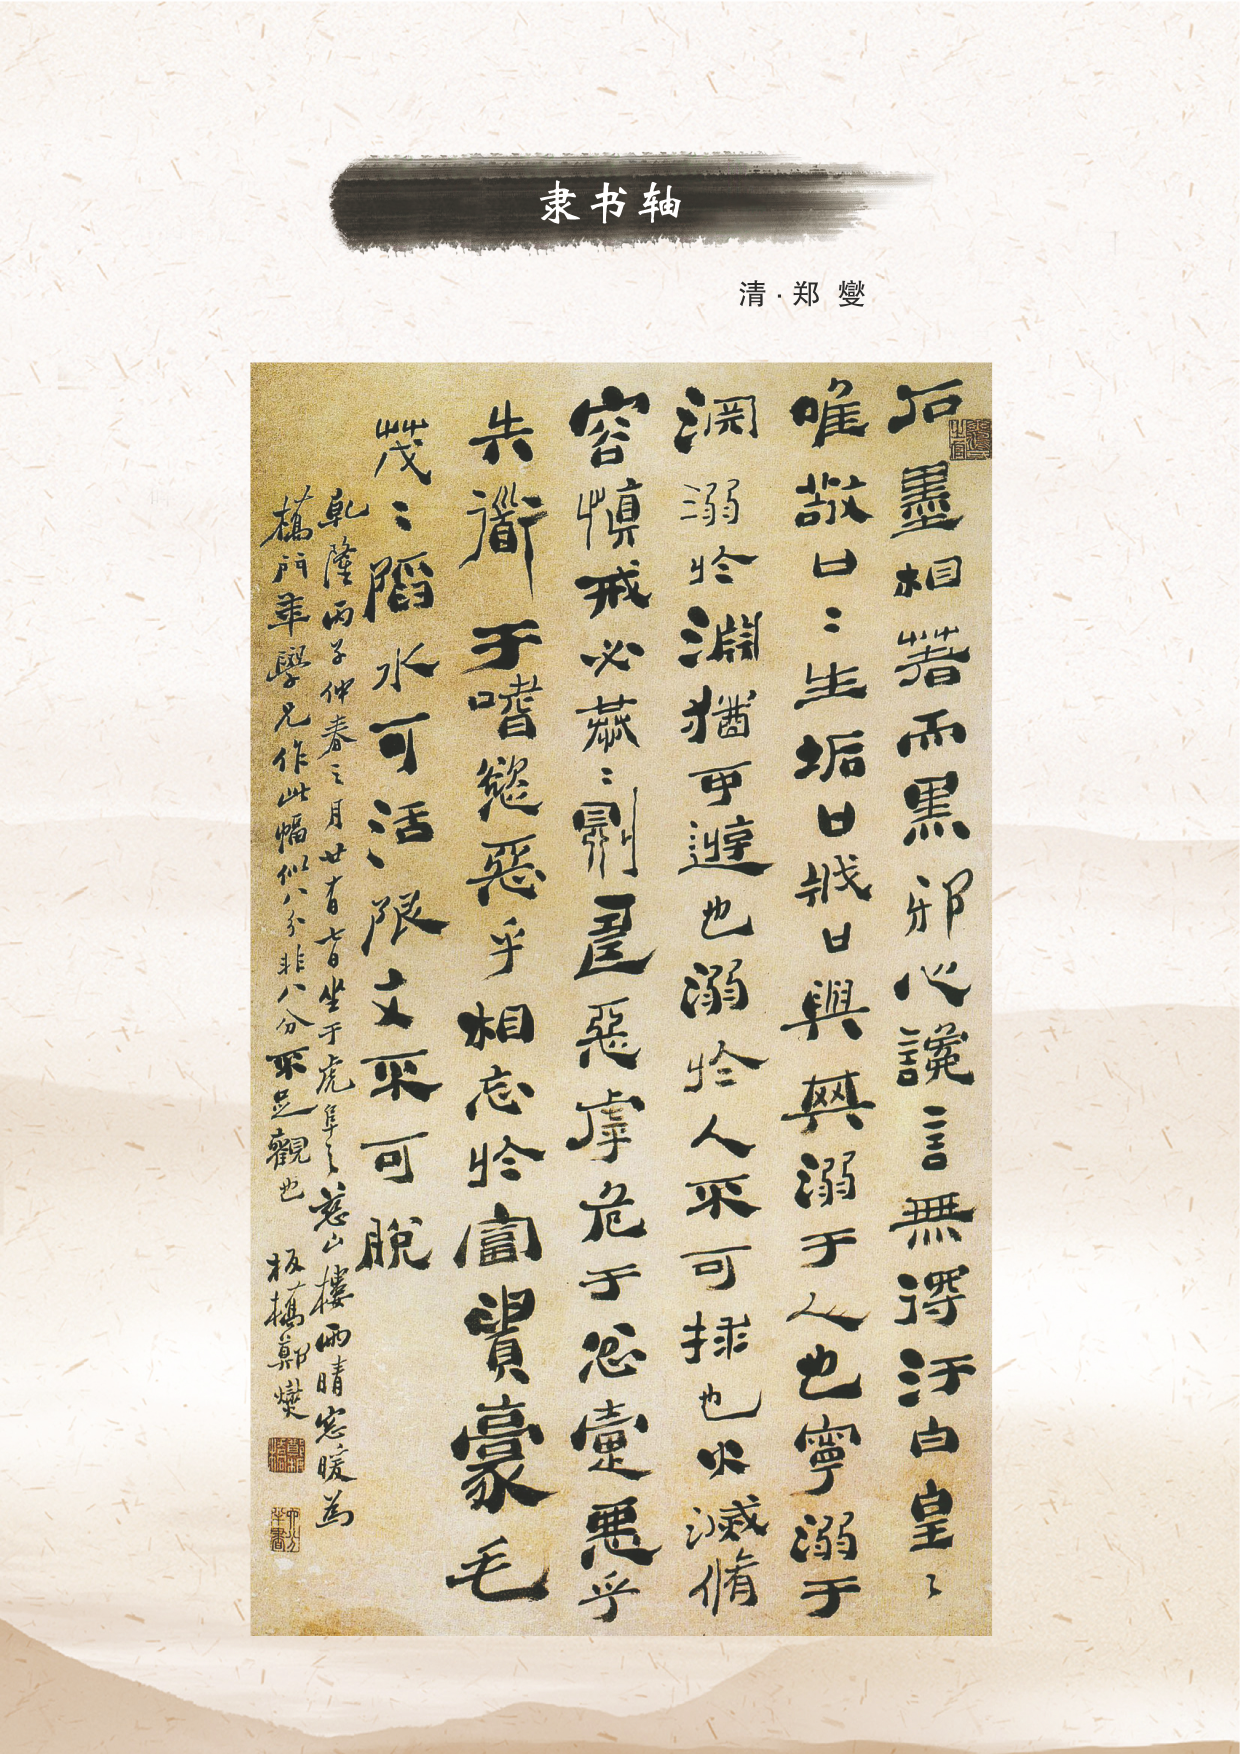 隶书轴
清·郑 燮
石墨相著而黑邪心讒言無得汙白皇〻
唯敬口〻生垢口戕口與其溺于人也寧溺于
淵溺於淵猶可遊也溺於人不可捄也火滅脩
容慎戒必恭〻則壽惡虖危于忿疐惡乎
失道于嗜慾惡乎相忘於富貴豪毛
茂〻水可活限文不可脫
乾隆丙子仲春之月廿有七日坐于虎阜之慈山樓雨晴窓暖為
橋門年學兄作此幅似八分非八分不足觀也 板橋鄭燮